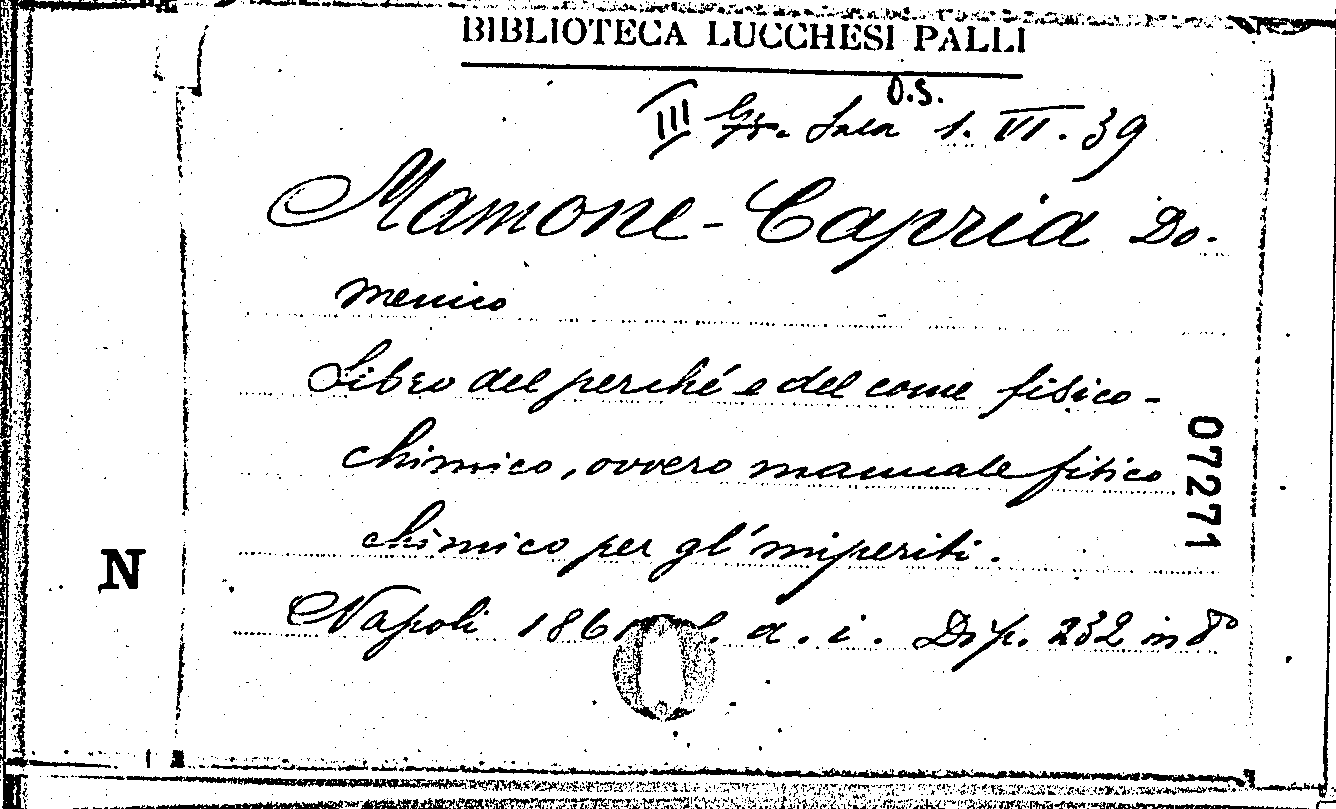 BIBLIOTECA LUCCHESI PALLI
O.S.
III Gr. Sala 1. VI. 39
Mamone-Capria Do-
menico
Libro del perché e del come fisico-
chimico, ovvero manuale fisico
chimico per gl'imperiti.
Napoli 186 a. i. Di p. 232 in 8°
07271
N